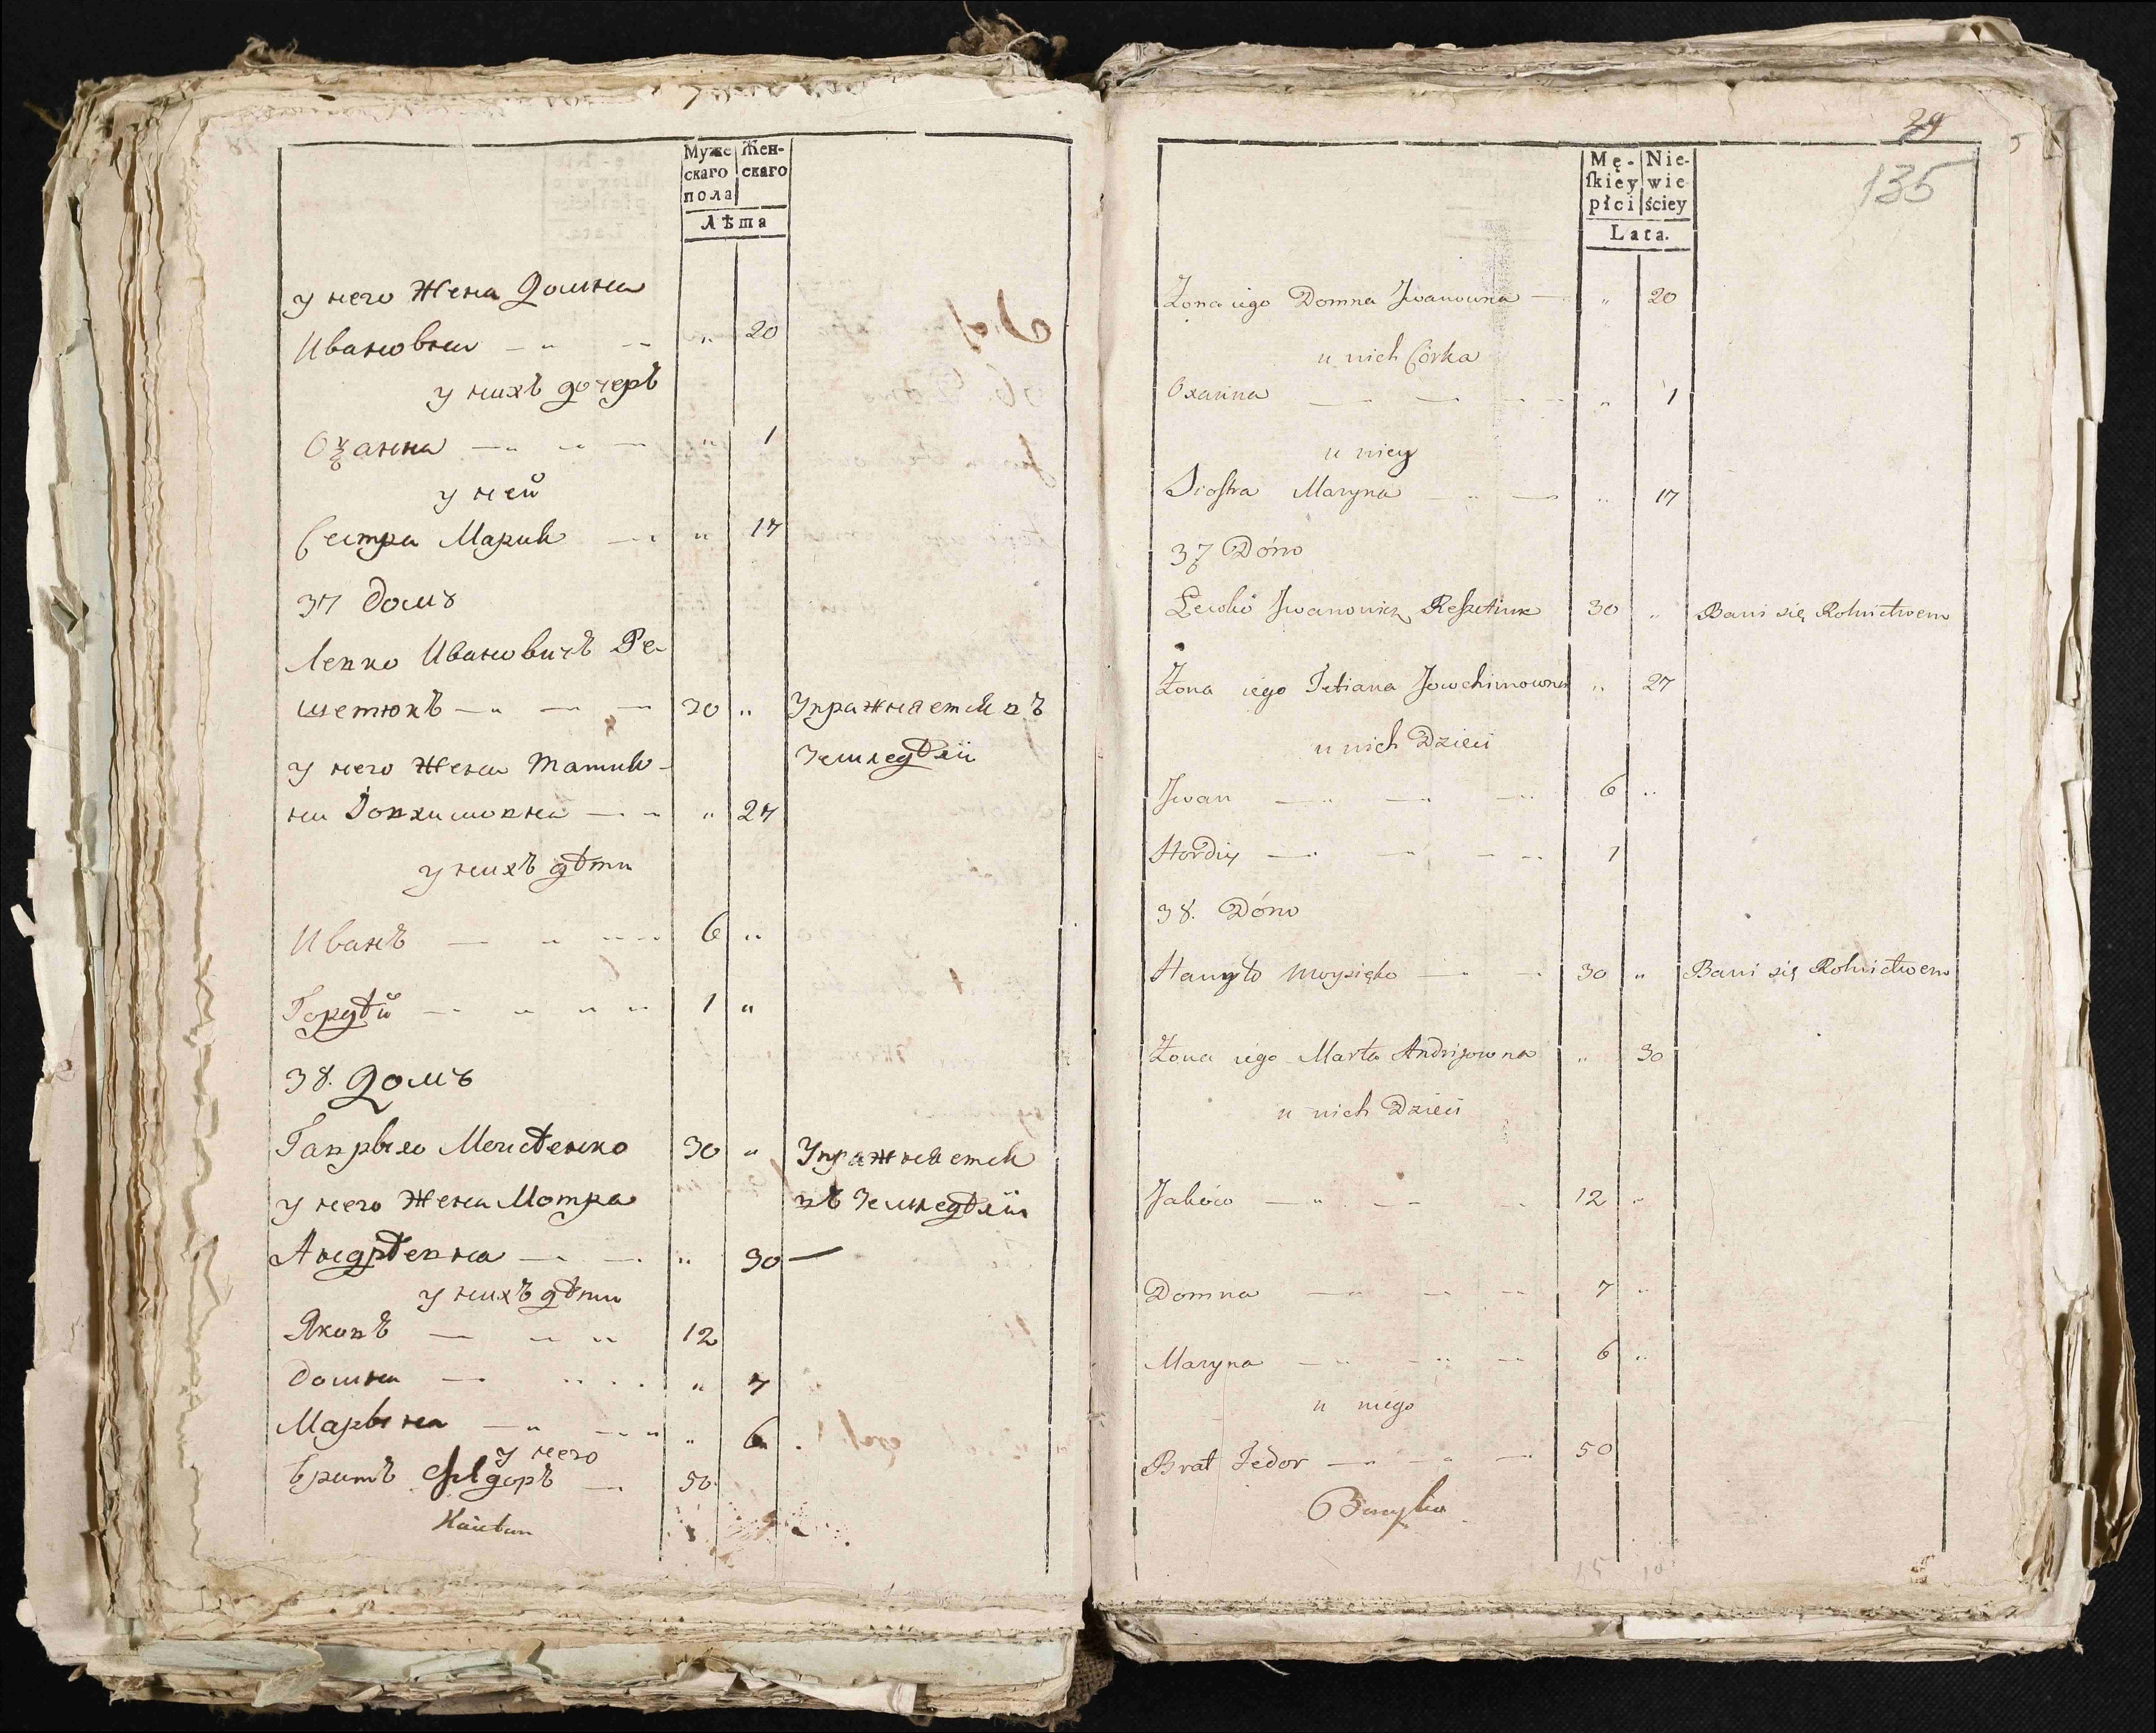 Муже Жен-
скаго скаго
пола
Лѣта
у него Жена Домна
Ивановна 20
у нихъ дочеръ
Оѯанна 1
у ней
Сестра Мария 17
37 домъ
Левко Ивановичъ Ре-
шетюкъ 30 Упражняется въ
Земледѣлii
у него Жена Татия-
на Iовхимовна 27
у нихъ дѣти
Иванъ 6
Гордѣй 1
38. Домъ
Гаврыло Моисѣенко 30 Упражняется
у него Жена Мотра въ Земледѣлii
Андрѣевна 30
у нихъ дѣти
Яковъ 12
Домна 7
Марына 6
у него
братъ Федоръ 50
29
135
Mę- Nie-
ſkiey wie
płci ściey
Lata.
Żona iego Domna Jwanowna 20
u nich Córka
Oxanna 1
u niey
Siostra Maryna 17
37 Dóm
Lewko Jwanowicz Reszetiuk 30 Bawi się Rolnictwem
Żona iego Tetiana Jowchimowna 27
u nich Dzieci
Jwan 6
Hordiy 1
38. Dóm
Hawryło Moysięko 30 Bawi się Rolnictwem
Żona iego Marta Andrijowna 30
u nich Dzieci
Jaków 12
Domna 7
Maryna 6
u niego
Brat Fedor 50
15 10